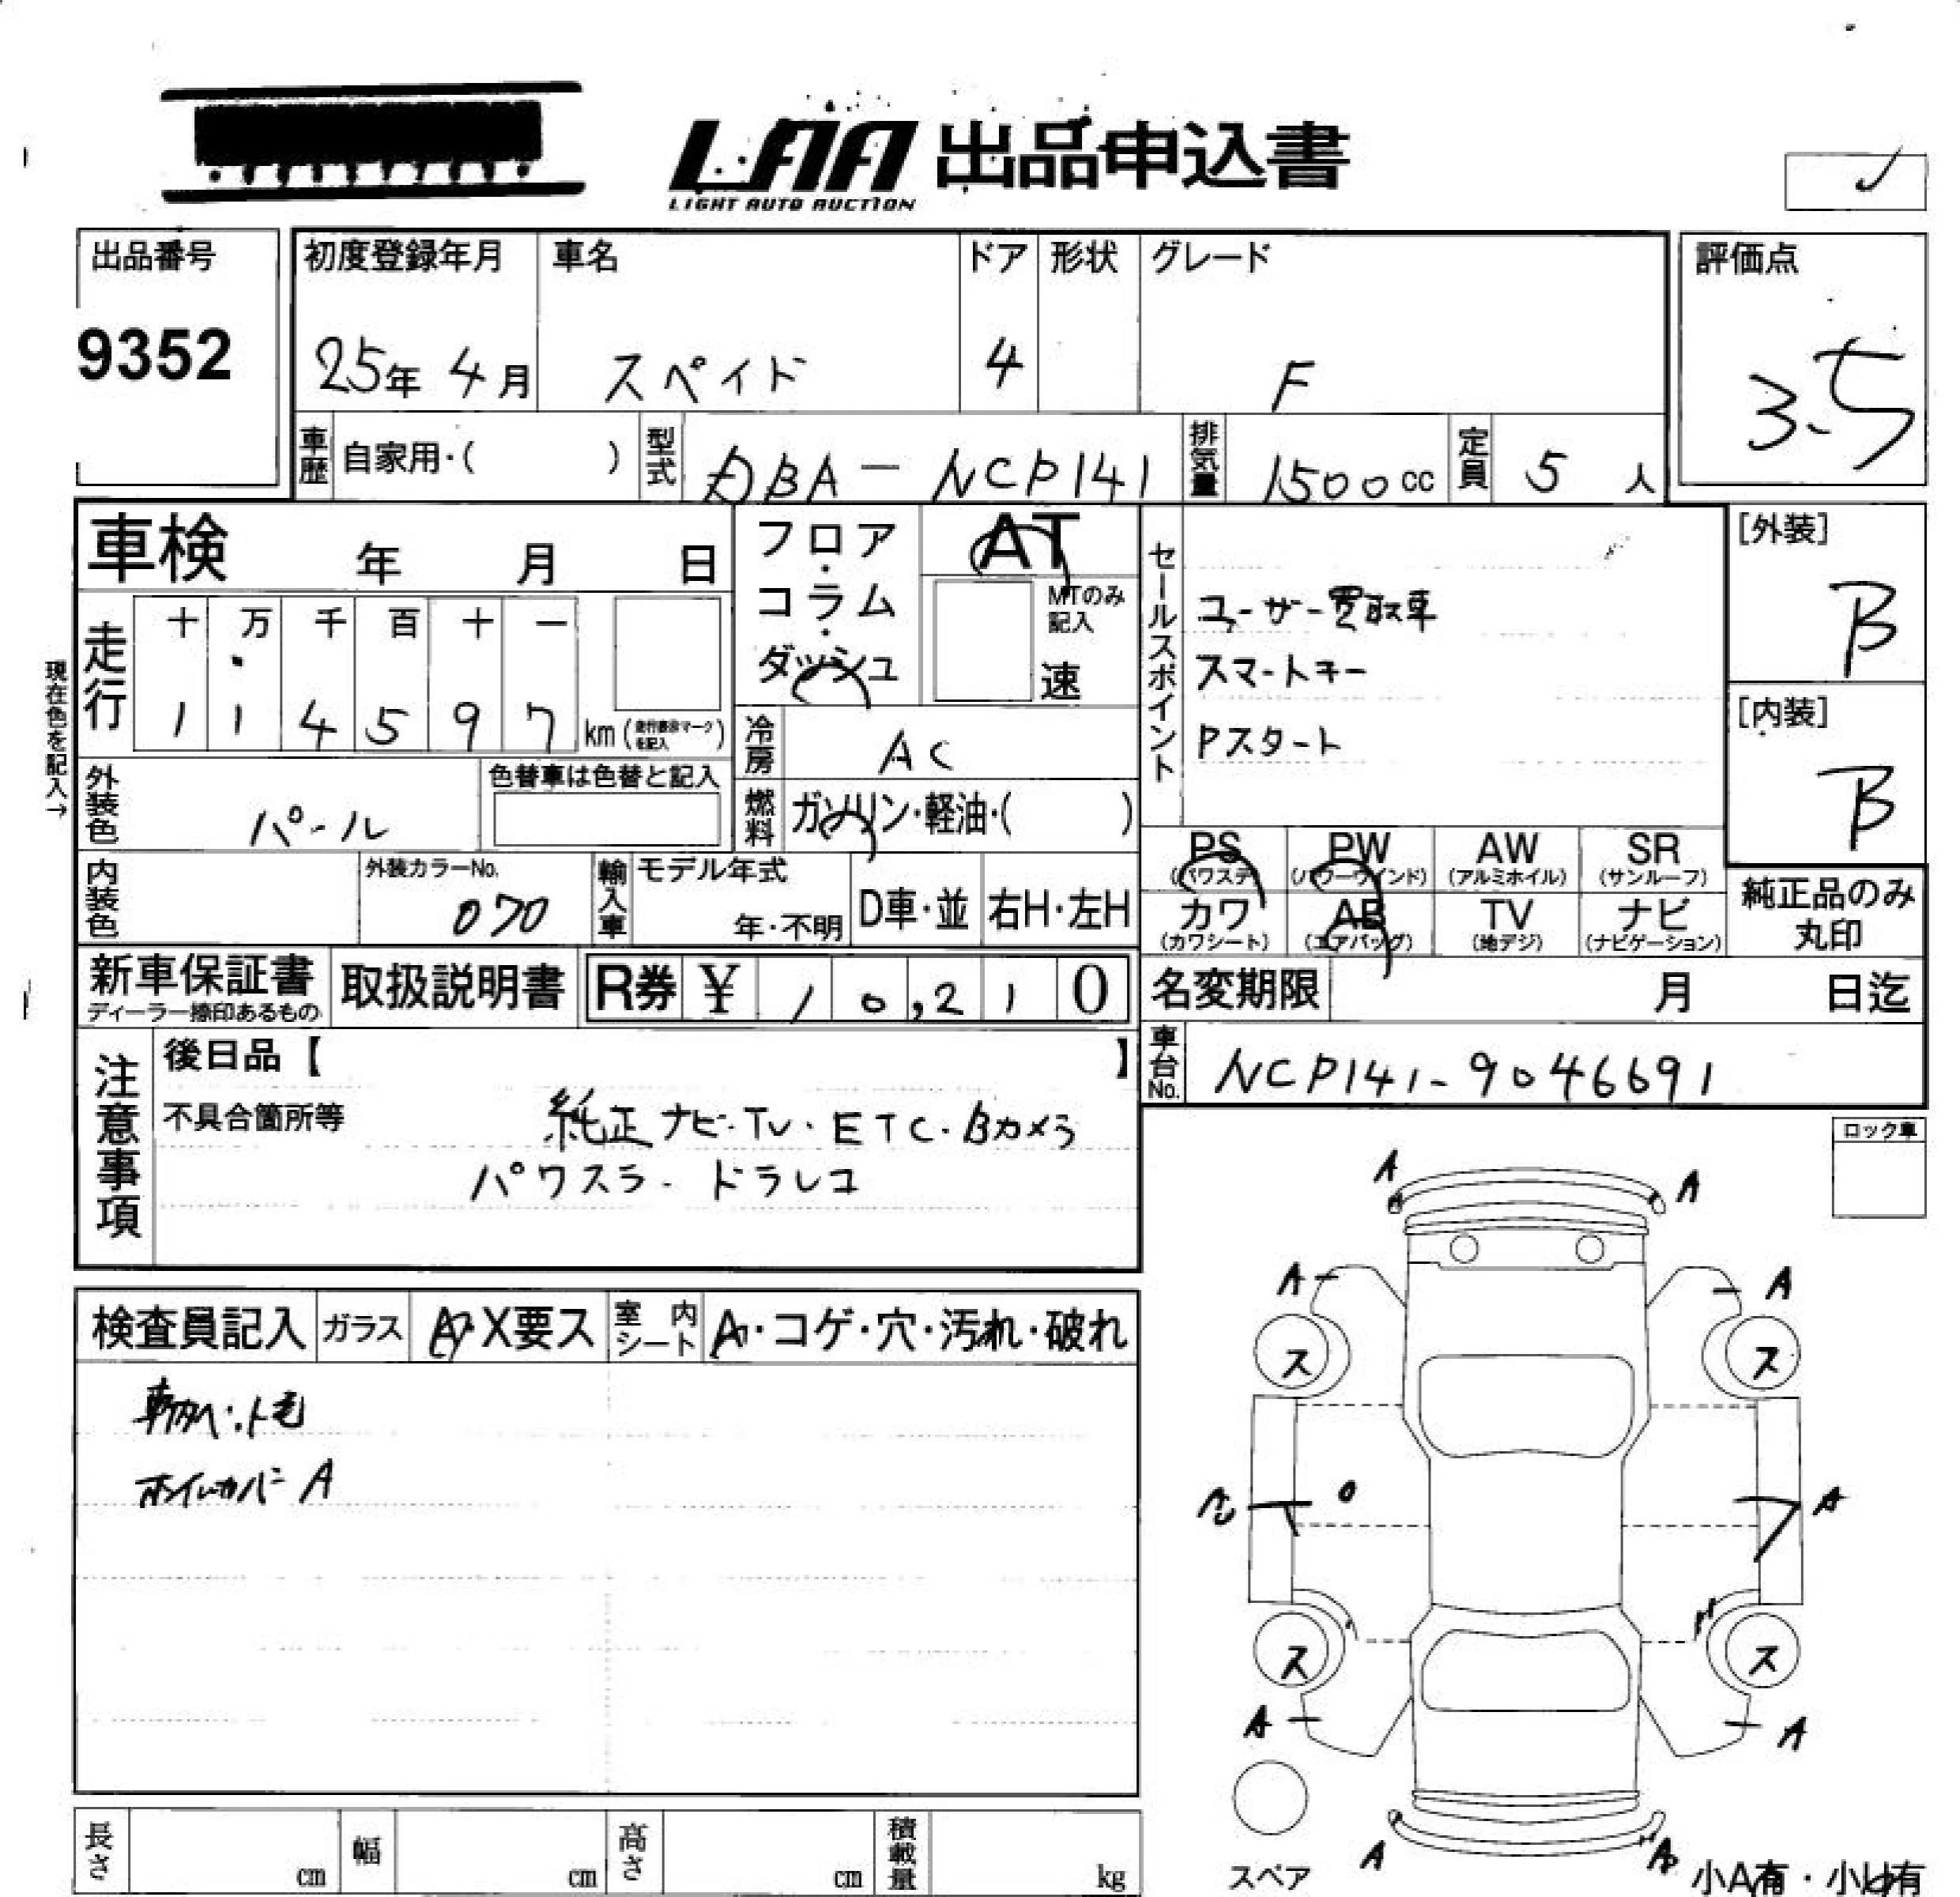 LAA 出品申込書
LIGHT AUTO AUCTION
出品番号
9352
初度登録年月
25年 4月
車名
スペイド
ドア
4
形状
グレード
F
評価点
3.5
車歴
自家用・( )
型式
DBA-NCP141
排気量
1500cc
定員
5 人
車検 年 月 日
フロア・コラム・ダッシュ
AT
MTのみ記入
速
セールスポイント
ユーザー買取車
スマートキー
Pスタート
[外装]
B
[内装]
B
現在色を記入→
走行
十 万 千 百 十 一
1 1 4 5 9 7 km (走行表示マークを記入)
冷房
AC
外装色
パール
色替車は色替と記入
燃料
ガソリン・軽油・( )
PS (パワステ) PW (パワーウインド) AW (アルミホイル) SR (サンルーフ)
カワ (カワシート) AB (エアバッグ) TV (地デジ) ナビ (ナビゲーション)
純正品のみ
丸印
内装色
外装カラーNo.
070
輸入車
モデル年式
年・不明
D車・並
右H・左H
新車保証書
ディーラー捺印あるもの
取扱説明書
R券 ¥ 10,210
名変期限 月 日迄
車台No.
NCP141-9046691
注意事項
後日品【 】
不具合箇所等
純正ナビ・TV・ETC・Bカメラ
パワスラ・ドラレコ
ロック車
検査員記入
ガラス
A・X要ス
室内シート
A・コゲ・穴・汚れ・破れ
ホイルカバー A
A A
A A
ス ス
A
ス ス
A A
スペア
A A
小A有・小U有
長さ cm
幅 cm
高さ cm
積載量 kg